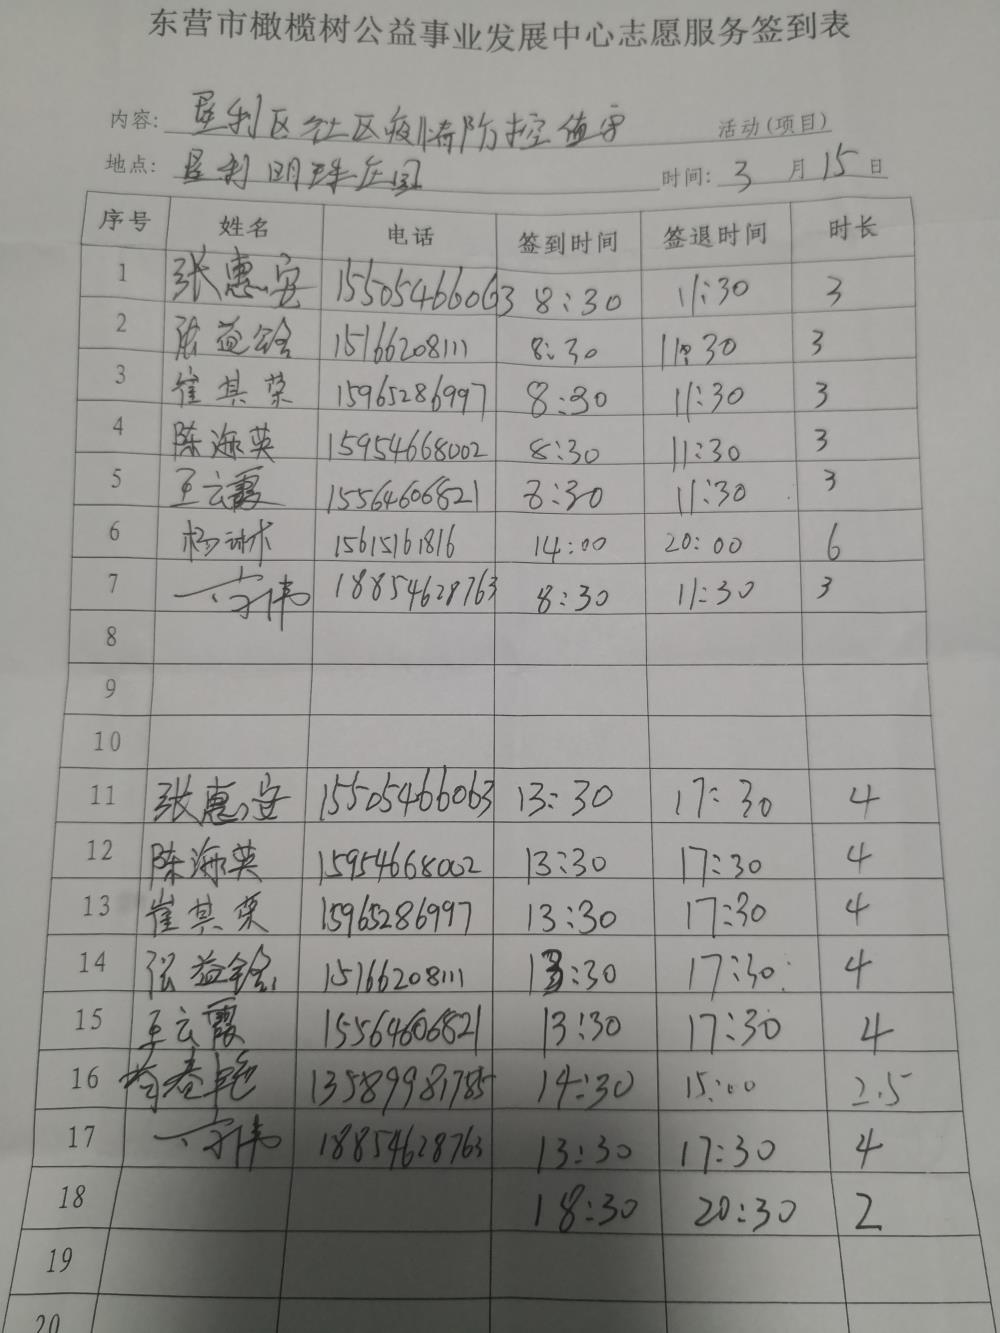 东营市橄榄树公益事业发展中心志愿服务签到表
内容: 垦利区社区疫情防控值守 活动(项目)
地点: 垦利明珠庄园 时间: 3 月 15 日
序号 姓名 电话 签到时间 签退时间 时长
1 张惠安 15505466063 8:30 11:30 3
2 张益铨 15166208111 8:30 11:30 3
3 崔其荣 15965286997 8:30 11:30 3
4 陈海英 15954668002 8:30 11:30 3
5 王云霞 15564606821 8:30 11:30 3
6 杨 15615161816 14:00 20:00 6
7 伟 18854628763 8:30 11:30 3
8
9
10
11 张惠安 15505466063 13:30 17:30 4
12 陈海英 15954668002 13:30 17:30 4
13 崔其荣 15965286997 13:30 17:30 4
14 张益铨 15166208111 13:30 17:30 4
15 王云霞 15564606821 13:30 17:30 4
16 春艳 13589981785 14:30 15:00 2.5
17 伟 18854628763 13:30 17:30 4
18 18:30 20:30 2
19
20